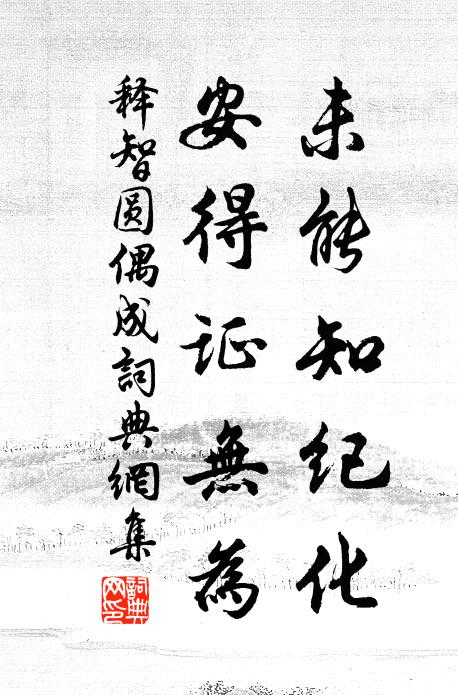 未能知纪化
安得证無為
释智圆偶成詞典網集
詞典網印